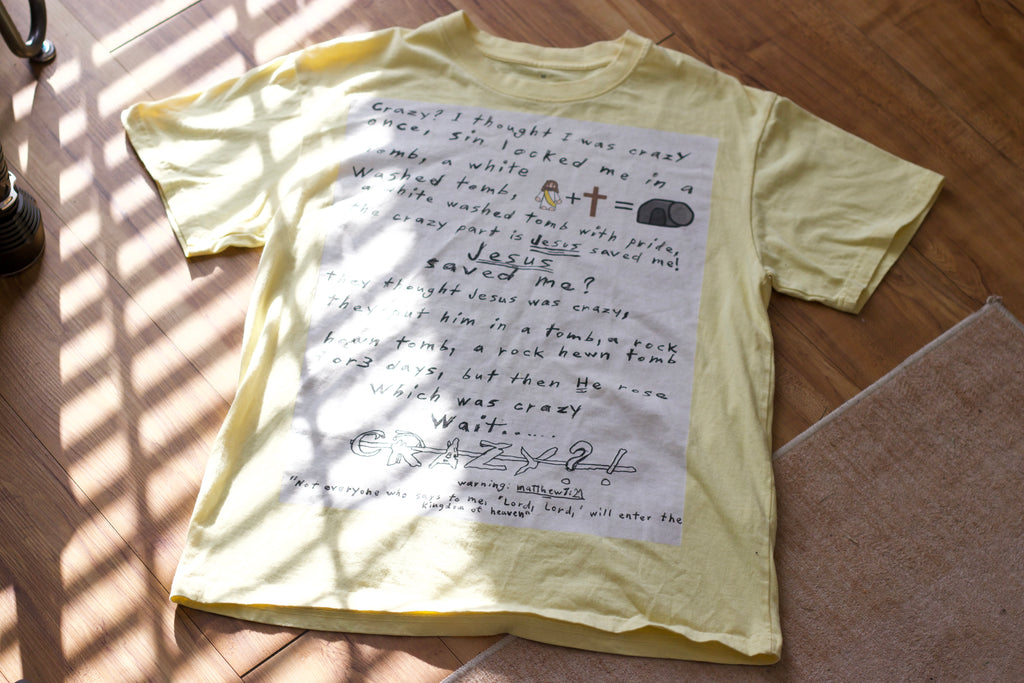 Crazy? I thought I was crazy
once, sin locked me in a
tomb, a white
washed tomb,
a white washed tomb with pride,
the crazy part is Jesus saved me!
Jesus
saved me?
they thought Jesus was crazy,
they put him in a tomb, a rock
hewn tomb, a rock hewn tomb
for 3 days, but then He rose
Which was crazy
Wait......
CRAZY?!
warning: matthew 7:21
"Not everyone who says to me, 'Lord, Lord,' will enter the
kingdom of heaven"